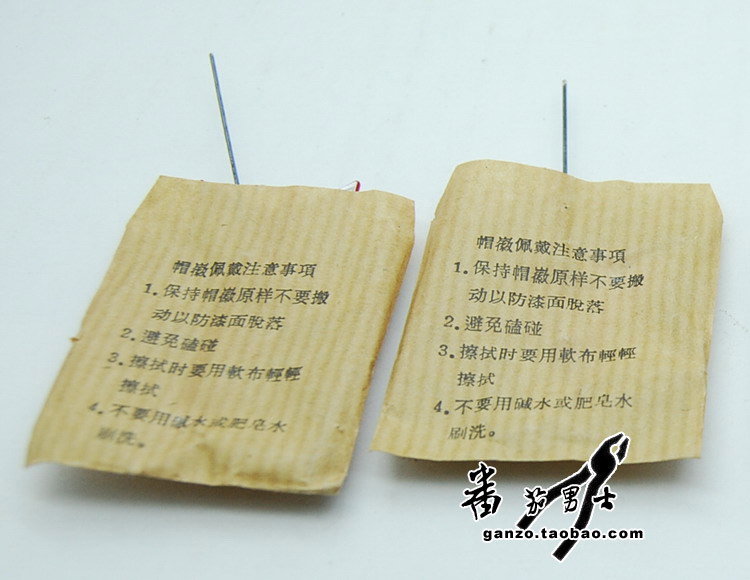 帽徽佩戴注意事項
1.保持帽徽原样不要搬
动以防漆面脫落
2.避免磕碰
3.擦拭时要用軟布輕輕
擦拭
4.不要用碱水或肥皂水
刷洗。
帽徽佩戴注意事項
1.保持帽徽原样不要搬
动以防漆面脫落
2.避免磕碰
3.擦拭时要用軟布輕輕
擦拭
4.不要用碱水或肥皂水
刷洗。
番茄男士
ganzo.taobao.com